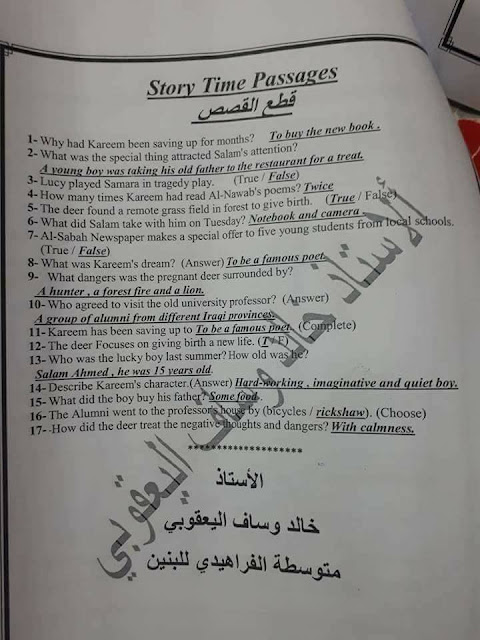 Story Time Passages
قطع القصص
1- Why had Kareem been saving up for months? To buy the new book .
2- What was the special thing attracted Salam's attention?
A young boy was taking his old father to the restaurant for a treat.
3- Lucy played Samara in tragedy play. (True / False)
4- How many times Kareem had read Al-Nawab's poems? Twice
5- The deer found a remote grass field in forest to give birth. (True / False)
6- What did Salam take with him on Tuesday? Notebook and camera
7- Al-Sabah Newspaper makes a special offer to five young students from local schools.
(True / False)
8- What was Kareem's dream? (Answer) To be a famous poet.
9- What dangers was the pregnant deer surrounded by?
A hunter , a forest fire and a lion.
10- Who agreed to visit the old university professor? (Answer)
A group of alumni from different Iraqi provinces.
11- Kareem has been saving up to To be a famous poet. (Complete)
12- The deer Focuses on giving birth a new life. (T / F)
13- Who was the lucky boy last summer? How old was he?
Salam Ahmed , he was 15 years old.
14- Describe Kareem's character.(Answer) Hard-working , imaginative and quiet boy.
15- What did the boy buy his father? Some food
16- The Alumni went to the professor's house by (bicycles / rickshaw). (Choose)
17- How did the deer treat the negative thoughts and dangers? With calmness.
********************
الأستاذ
خالد وساف اليعقوبي
متوسطة الفراهيدي للبنين
الاستاذ خالد وساف اليعقوبي